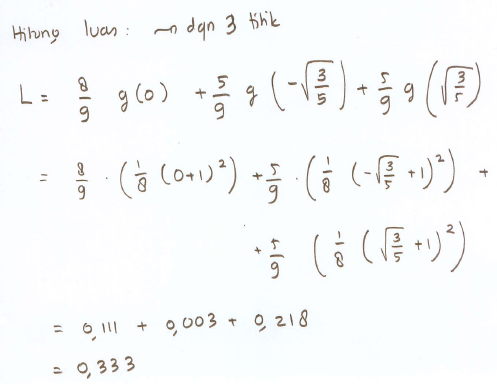 Hitung luas : → dgn 3 titik
L = 8/9 g(0) + 5/9 g(-√(3/5)) + 5/9 g(√(3/5))
= 8/9 · (1/8 (0+1)²) + 5/9 · (1/8 (-√(3/5) +1)²) +
+ 5/9 (1/8 (√(3/5) +1)²)
= 0,111 + 0,003 + 0,218
= 0,333